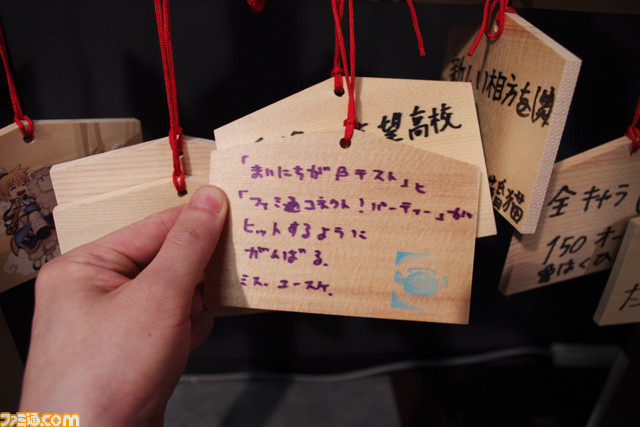 「まいにちがβテスト」と
「ファミ通コネクト!パーティー」が
ヒットするように
がんばる。
ミス.ユースケ.
望高校
新しい相方を
猫
全キャラ
150オー
ファミ通.com